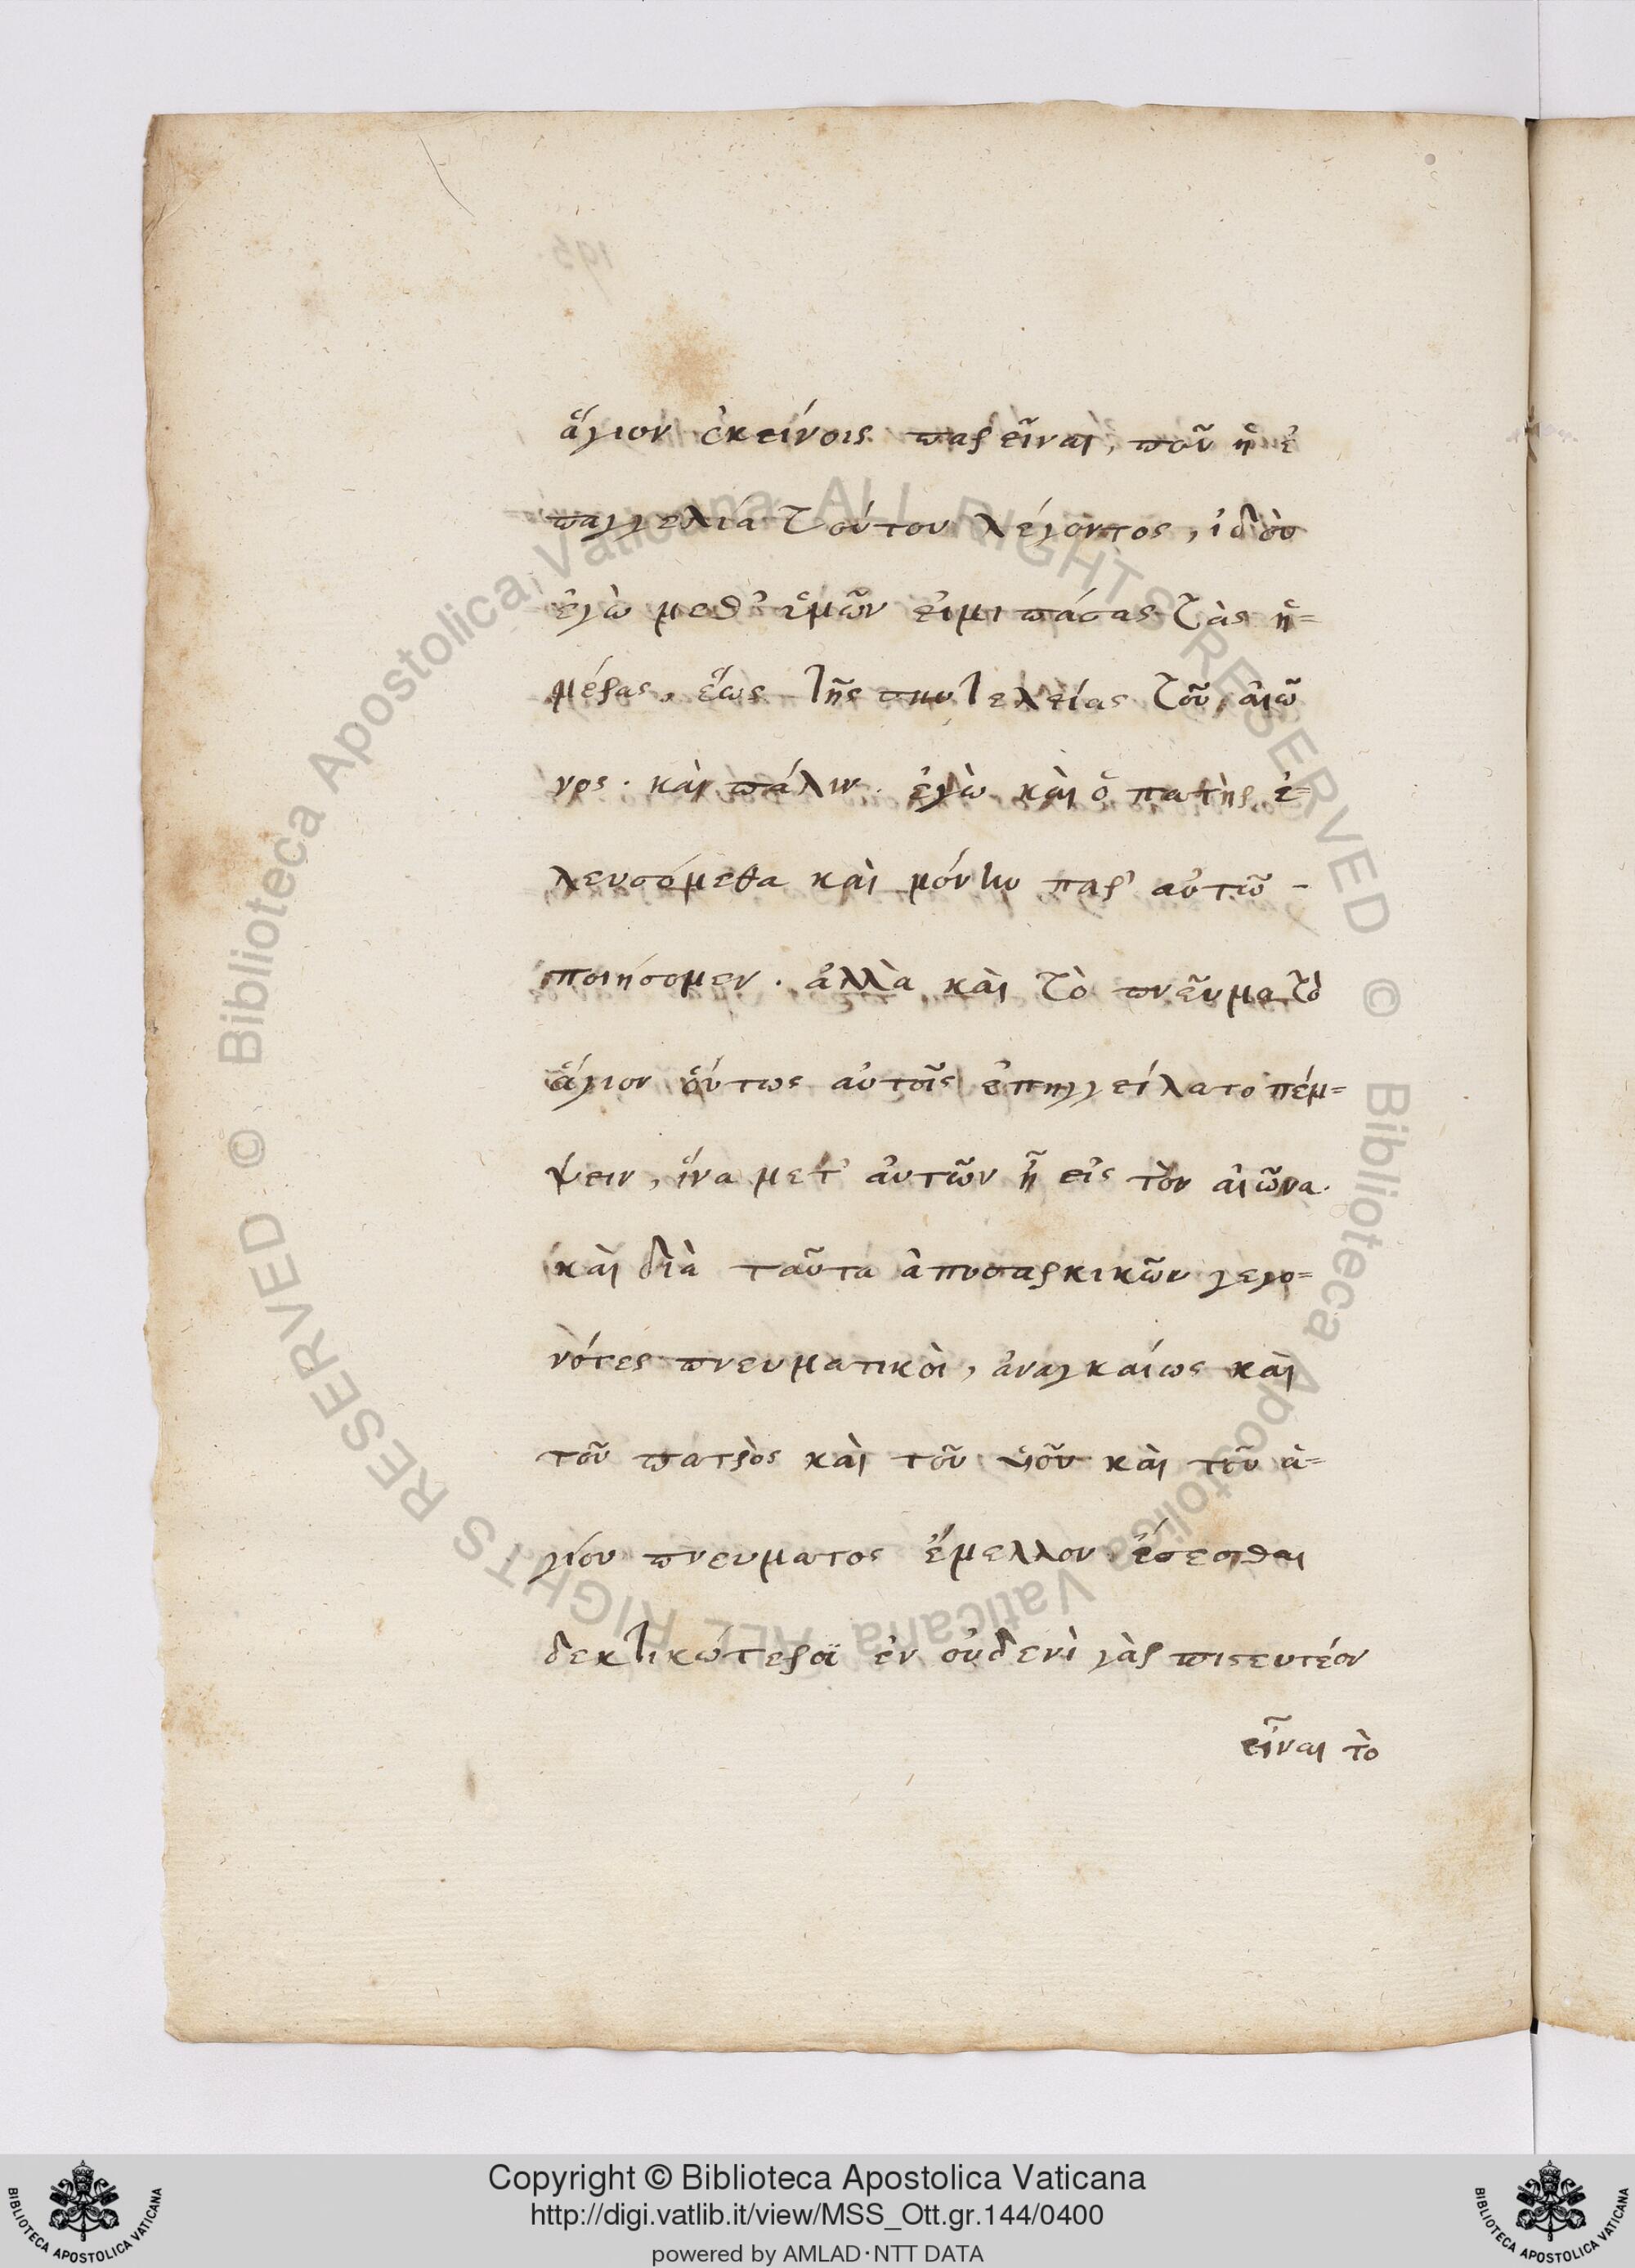 ἅγιον ἐκείνοις παρεῖναι, ποῦ ἡ ἐ
παγγελία τούτου λέγοντος, ἰδοὺ
ἐγὼ μεθ' ὑμῶν εἰμι πάσας τὰς ἡ=
μέρας, ἕως τῆς συντελείας τοῦ αἰῶ
νος. καὶ πάλιν. ἐγὼ καὶ ὁ πατὴρ ἐ=
λευσόμεθα καὶ μόνην παρ' αὐτῶ -
ποιήσομεν. ἀλλὰ καὶ τὸ πνεῦμα τὸ
ἅγιον οὕτως αὐτοῖς ἐπηγγείλατο πέμ=
ψειν, ἵνα μετ' αὐτῶν ᾖ εἰς τὸν αἰῶνα.
καὶ διὰ ταῦτα ἀπὸ σαρκικῶν γεγο=
νότες πνευματικοὶ, ἀναγκαίως καὶ
τοῦ πατρὸς καὶ τοῦ υἱοῦ καὶ τοῦ ἁ=
γίου πνευματος ἔμελλον ἔσεσθαι
δεκτικώτεροι ἐν οὐδενὶ γὰρ πιστευτέον
εἶναι τὸ
© Biblioteca Apostolica Vaticana ALL RIGHTS RESERVED © Biblioteca Apostolica Vaticana ALL RIGHTS RESERVED
Copyright © Biblioteca Apostolica Vaticana
http://digi.vatlib.it/view/MSS_Ott.gr.144/0400
powered by AMLAD·NTT DATA
BIBLIOTECA APOSTOLICA VATICANA
BIBLIOTECA APOSTOLICA VATICANA